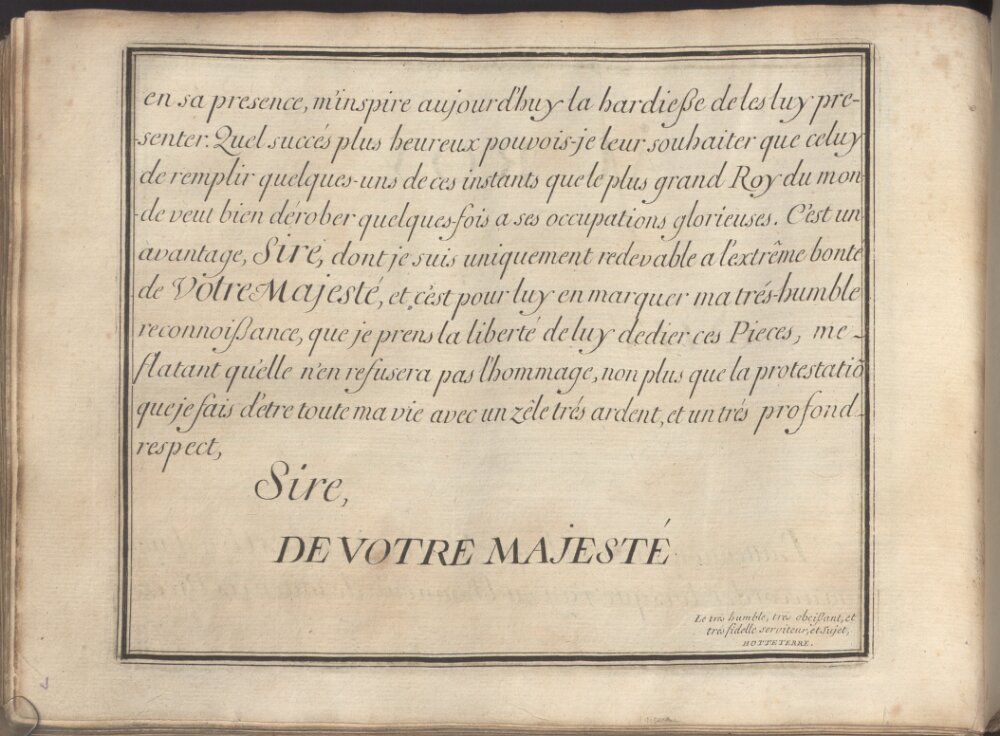 en sa presence, m'inspire aujourd'huy la hardieße de les luy pre-
senter. Quel succés plus heureux pouvois-je leur souhaiter que celuy
de remplir quelques-uns de ces instants que le plus grand Roy du mon-
de veut bien dérober quelques-fois a ses occupations glorieuses. C'est un
avantage, Sire, dont je suis uniquement redevable a l'extrême bonté
de Votre Majesté, et c'est pour luy en marquer ma trés-humble
reconnoißance, que je prens la liberté de luy dedier ces Pieces, me
flatant qu'elle n'en refusera pas l'hommage, non plus que la protestatiõ
que je fais d'etre toute ma vie avec un zêle trés ardent, et un trés profond
respect,
Sire,
DE VOTRE MAJESTÉ
Le tres humble, tres obeißant, et
tres fidelle serviteur, et Sujet,
HOTTETERRE.